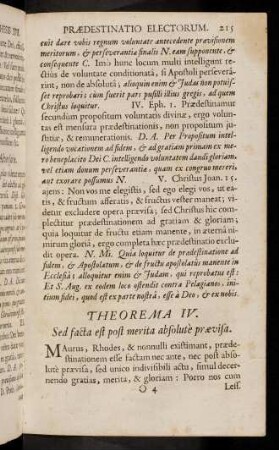 PRÆDESTINATIO ELECTORUM. 215
cuit dare vobis regnum voluntate antecedente prævisionem
meritorum, & perseverantia finalis N. eam supponente, &
consequente C. Imò hunc locum multi intelligunt re-
ctiùs de voluntate conditionatâ, si Apostoli perseverâ-
rint, non de absolutâ; alioquin enim & Judas non potuis-
set reprobari: cùm fuerit pars pusilli illius gregis, ad quem
Christus loquitur. IV. Eph. 1. Prædestinamur
secundùm propositum voluntatis divinæ, ergo volun-
tas est mensura prædestinationis, non propositum ju-
stitiæ, & remunerationis. D. A. Per Propositum intelli-
gendo vocationem ad fidem, & ad gratiam primam ex me-
ro beneplacito Dei C. intelligendo voluntatem dandi gloriam,
vel etiam donum perseverantiæ, quam ex congruo merean-
tur exorare possumus N. V. Christus Joan. 15.
ajens: Non vos me elegistis, sed ego elegi vos, ut ea-
tis, & fructum afferatis, & fructus vester maneat; vi-
detur excludere opera prævisa; sed Christus hic com-
plectitur prædestinationem ad gratiam & gloriam;
quia loquitur de fructu etiam manente, in æternâ ni-
mirum gloriâ, ergo completa hæc prædestinatio exclu-
dit opera. N. Mi. Quia loquitur de prædestinatione ad
fidem, & Apostolatum, & de fructu apostolatûs manente in
Ecclesiâ: alloquitur enim & Judam, qui reprobatus est:
Et S. Aug. ex eodem loco ostendit contra Pelagianos, ini-
tium fidei, quod est ex parte nostrâ, esse à Deo, & ex nobis.
THEOREMA IV.
Sed facta est post merita absolutè prævisa.
MAurus, Rhodes, & nonnulli existimant, præde-
stinationem esse factam nec ante, nec post abso-
lutè prævisa, sed unico indivisibili actu, simul decer-
nendo gratias, merita, & gloriam: Porro nos cum
O 4 Leis.